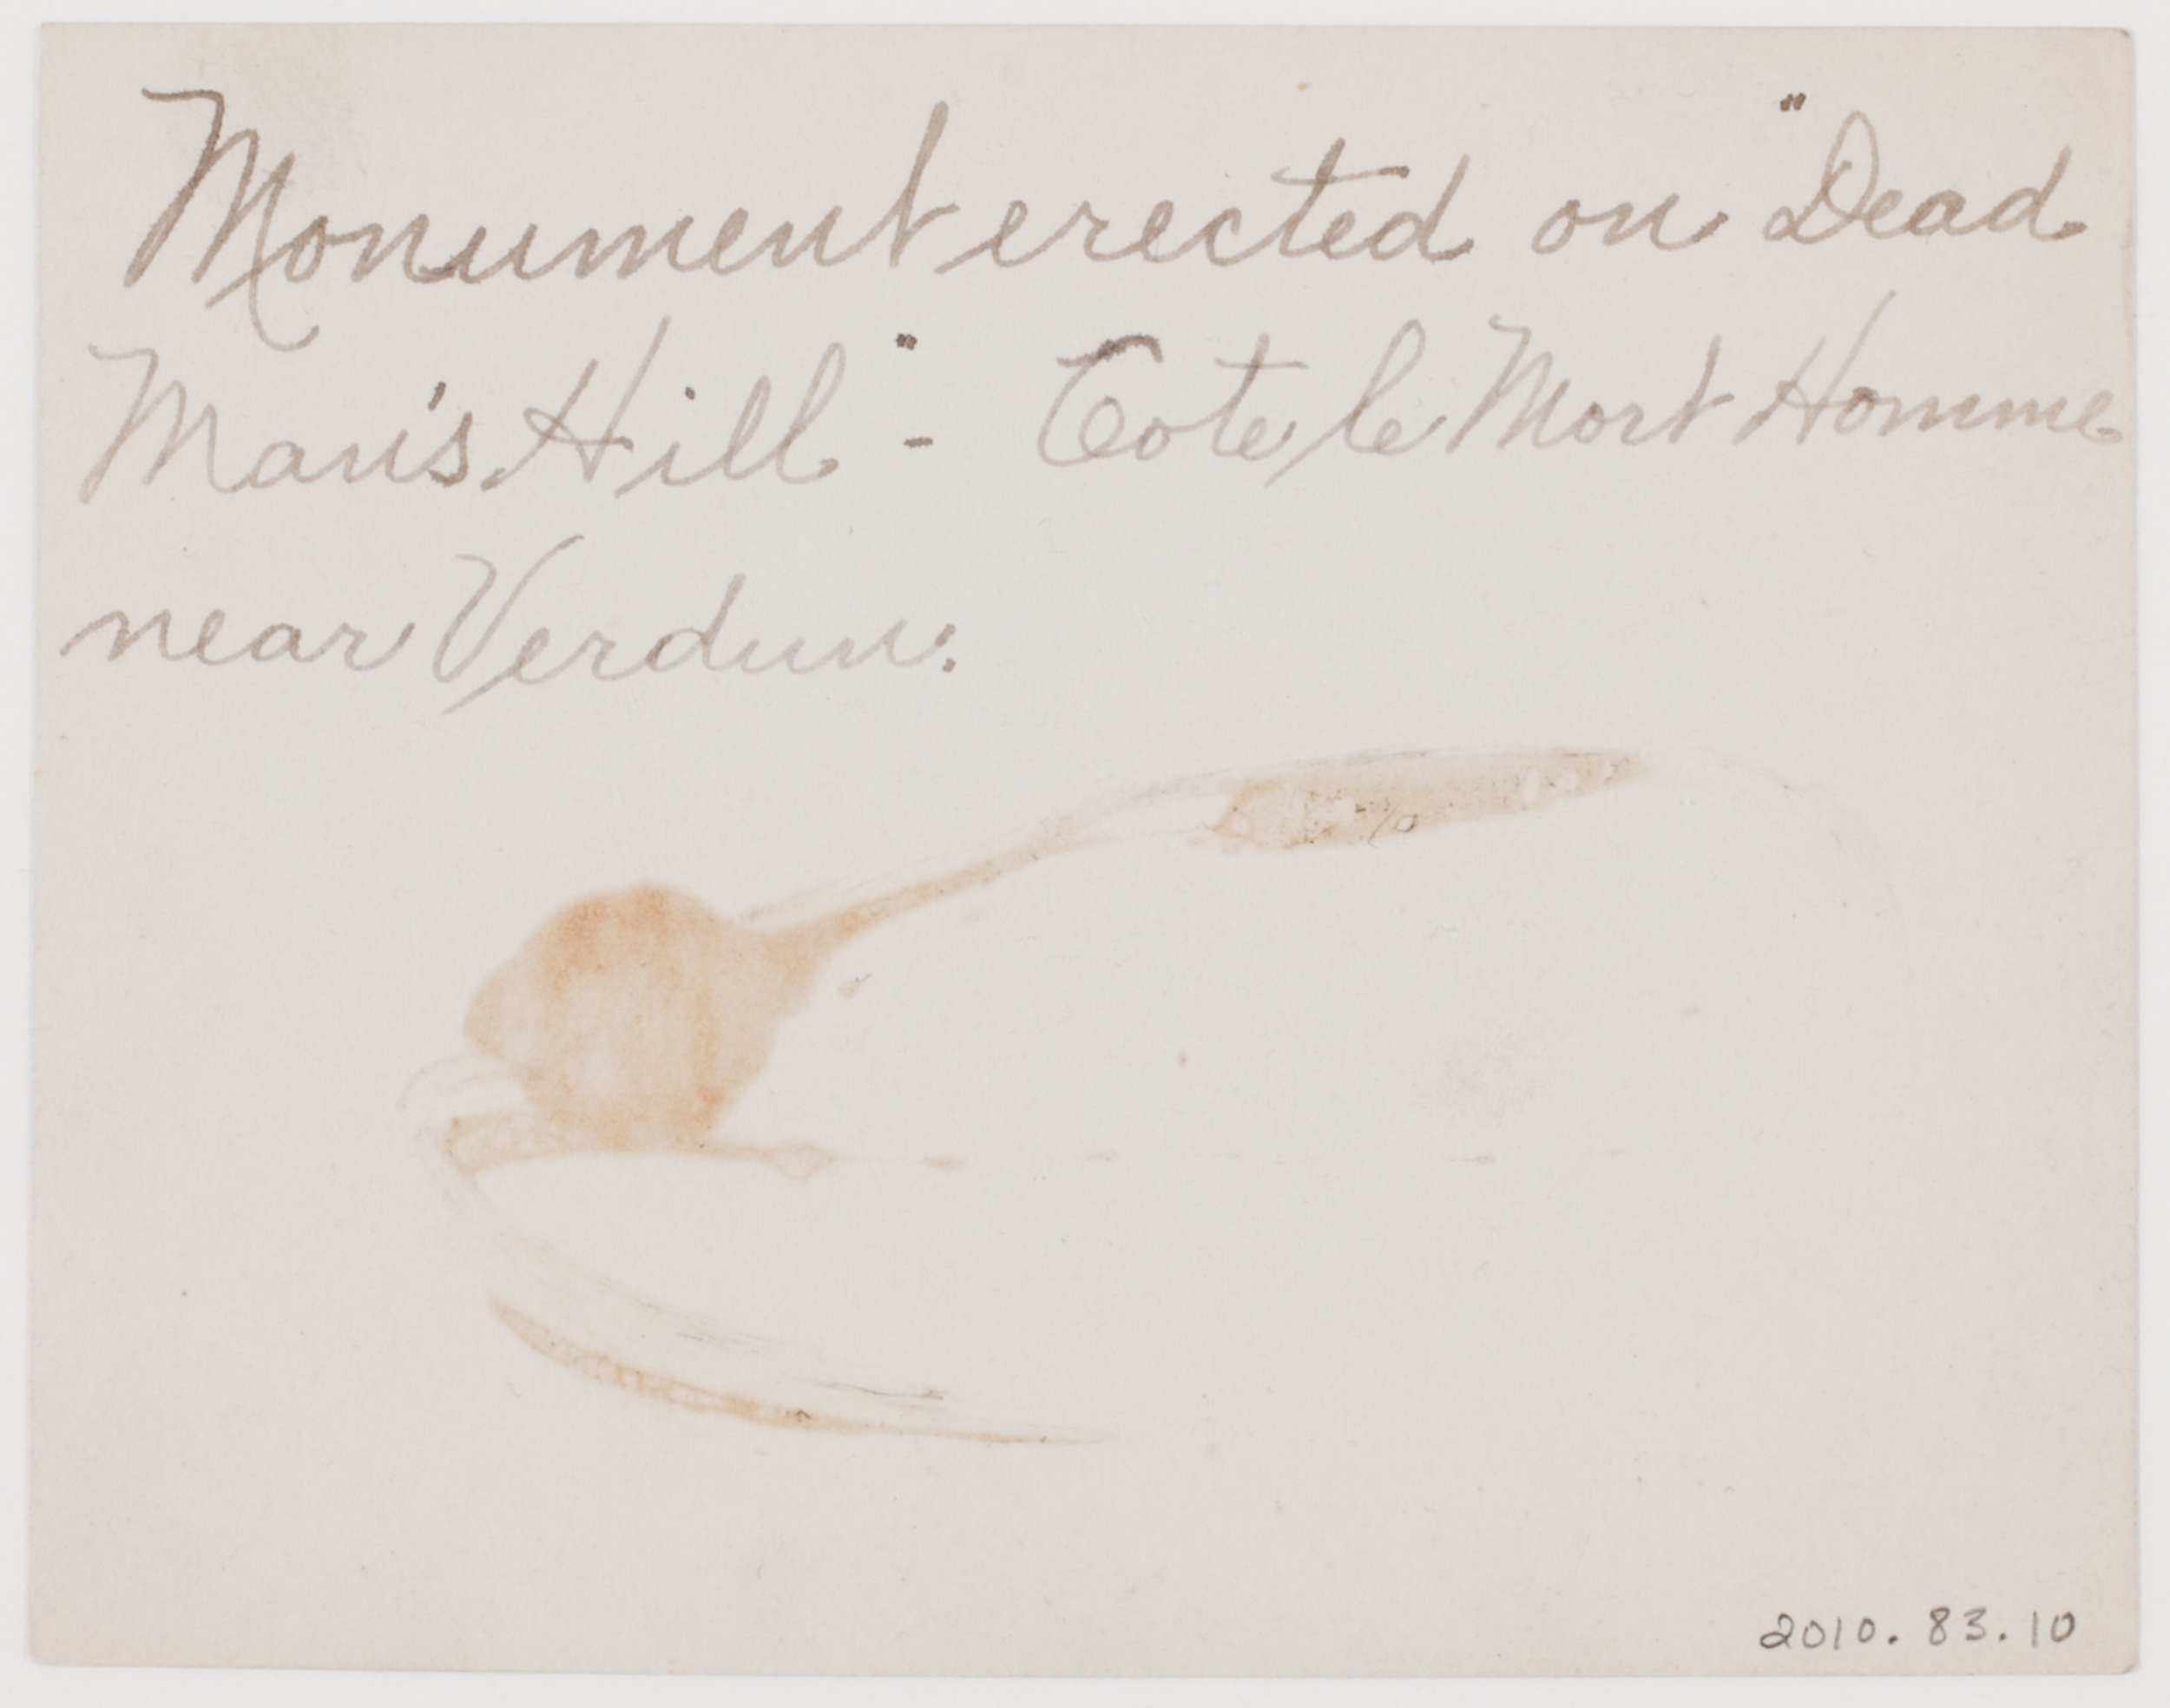 Monument erected on "Dead
Man's Hill" - Cote le Mort Homme
near Verdun.
2010.83.10